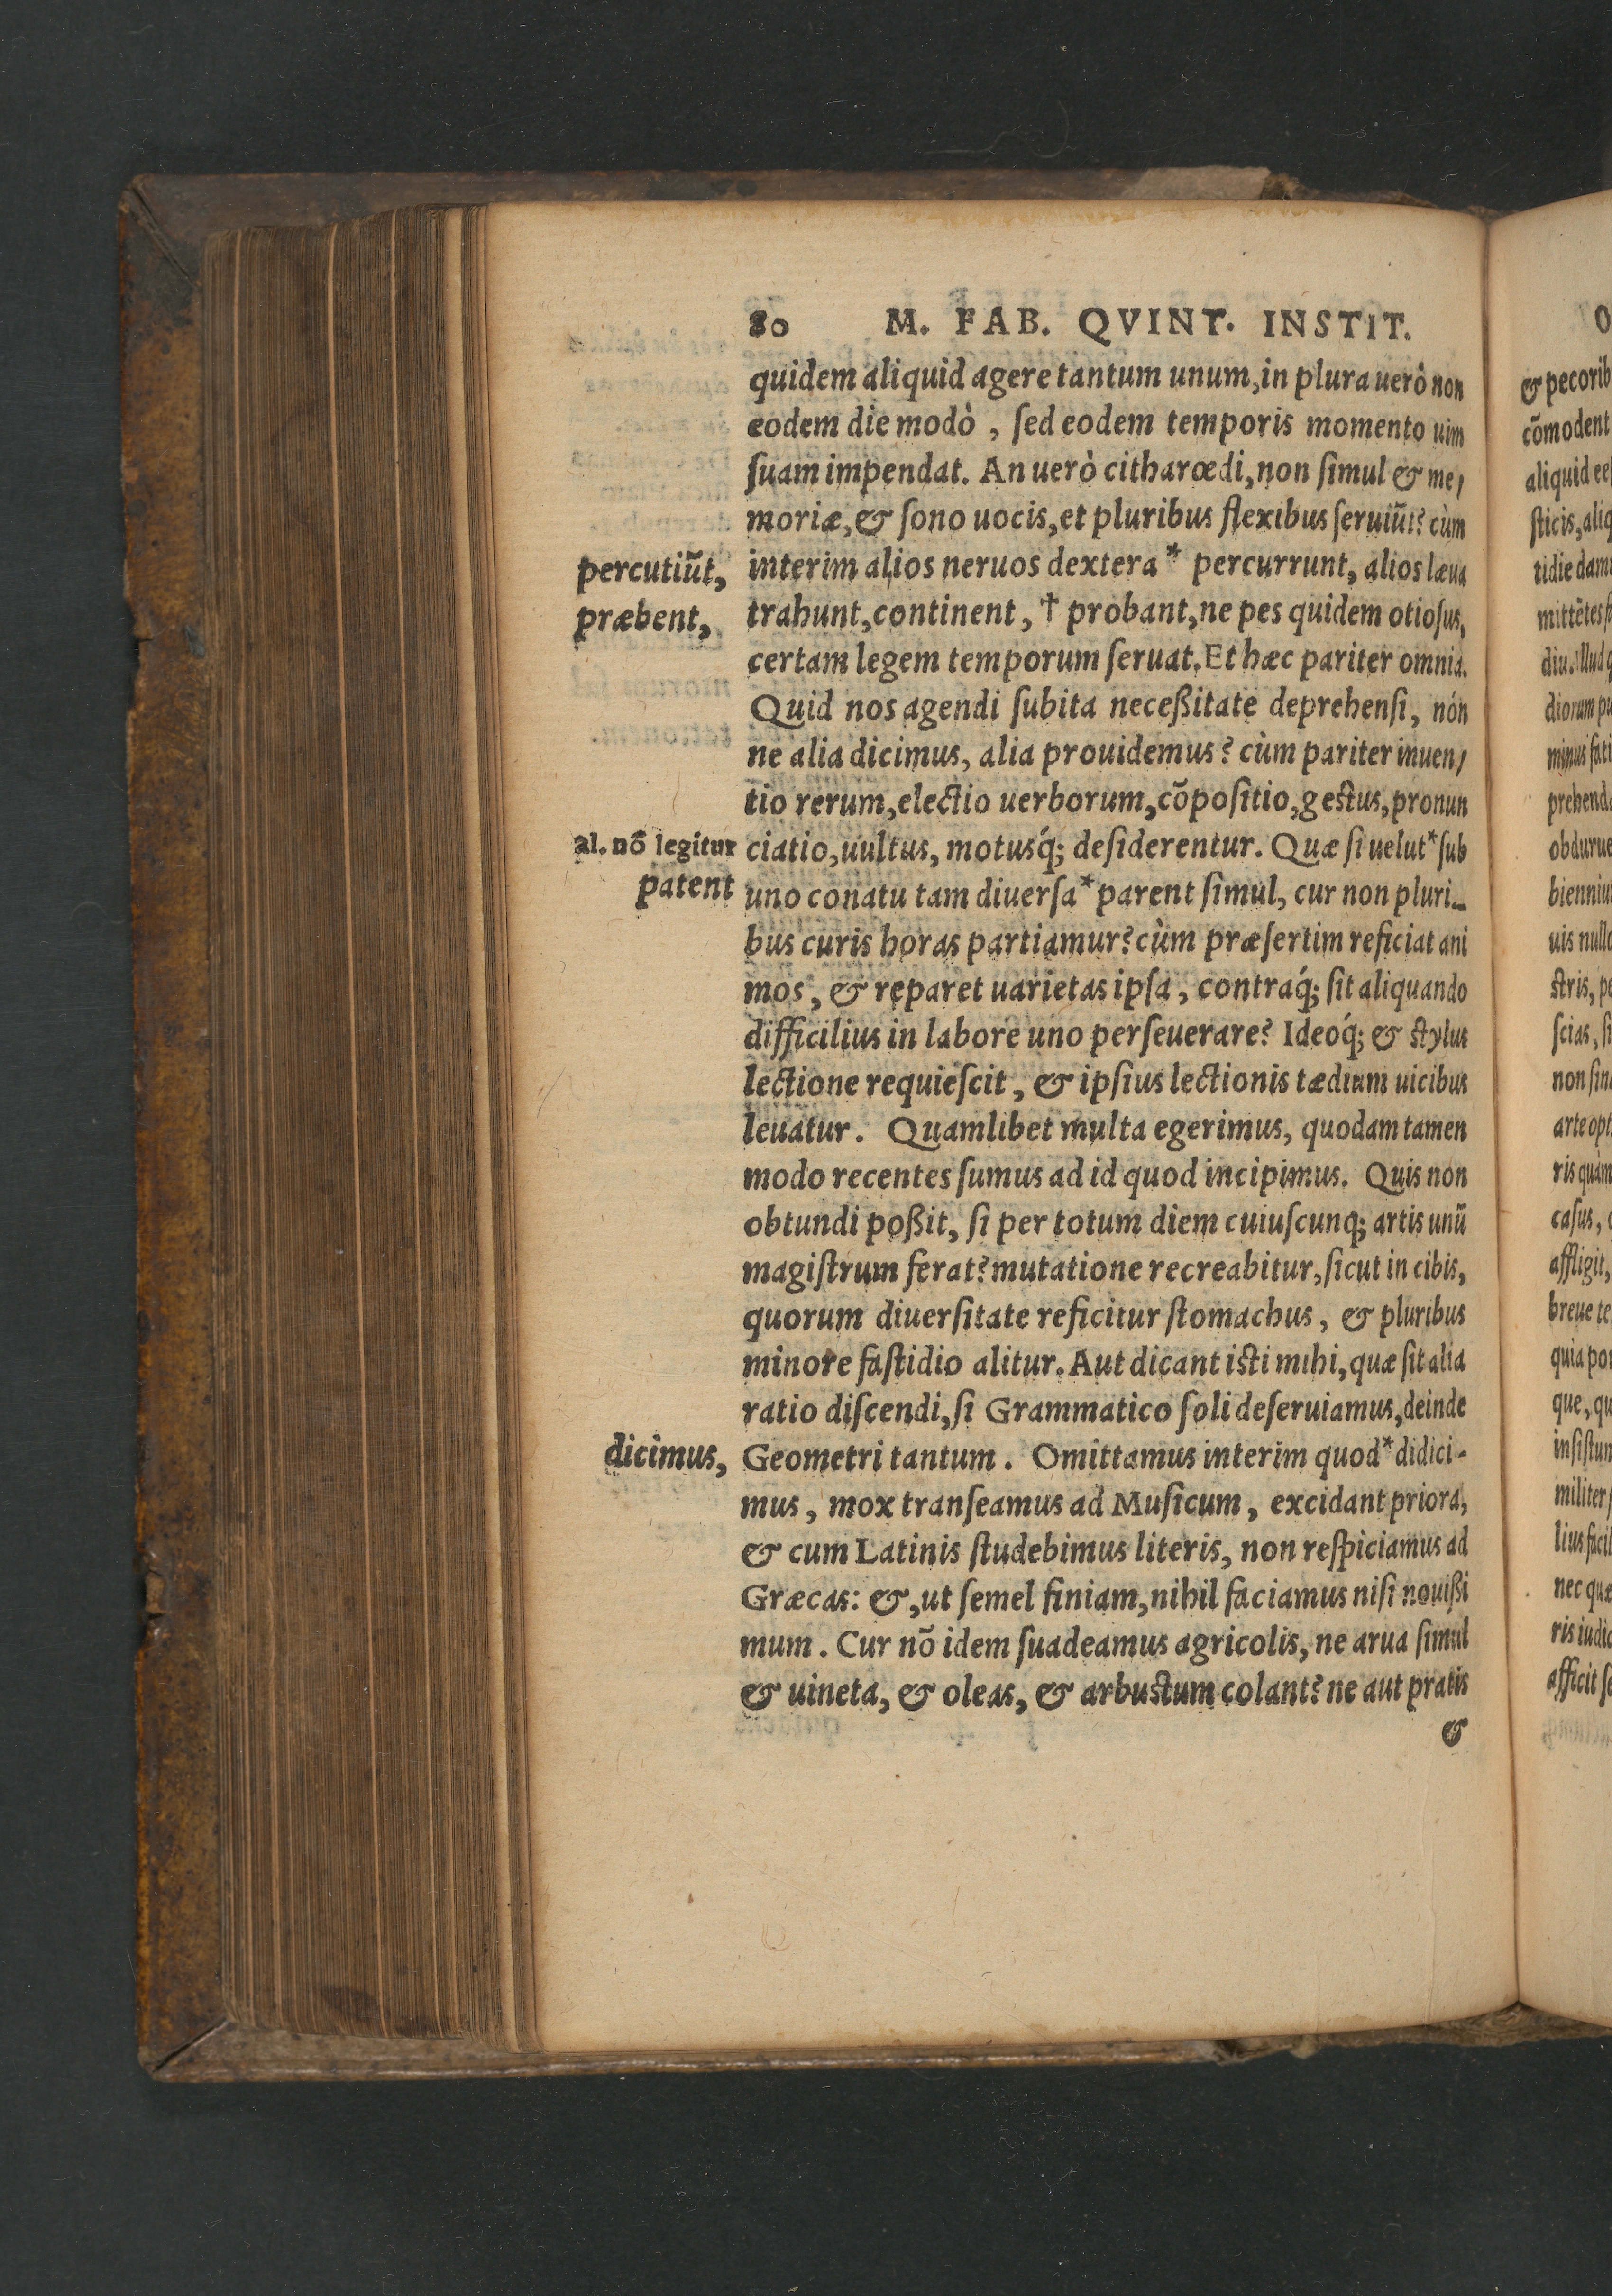 80 M. FAB. QVINT. INSTIT.
quidem aliquid agere tantum unum, in plura uerò non
eodem die modò, ſed eodem temporis momento uim
ſuam impendat. An uerò citharœdi, non ſimul & me,
moriæ, & ſono uocis, et pluribus flexibus ſeruiũt? cùm
percutiũt, interim alios neruos dextera* percurrunt, alios læua
præbent, trahunt, continent, † probant, ne pes quidem otioſus,
certam legem temporum ſeruat. Et hæc pariter omnia.
Quid nos agendi ſubita neceßitate deprehenſi, nón
ne alia dicimus, alia prouidemus? cùm pariter inuen,
tio rerum, electio uerborum, cõpoſitio, geſtus, pronun
al. nõ legitur ciatio, uultus, motusq́; deſiderentur. Quæ ſi uelut* ſub
patent uno conatu tam diuerſa* parent ſimul, cur non pluri-
bus curis horas partiamur? cùm præſertim reficiat ani
mos, & reparet uarietas ipſa, contraq́; ſit aliquando
difficilius in labore uno perſeuerare? Ideoq́; & ſtylus
lectione requieſcit, & ipſius lectionis tædium uicibus
leuatur. Quamlibet multa egerimus, quodam tamen
modo recentes ſumus ad id quod incipimus. Quis non
obtundi poßit, ſi per totum diem cuiuſcunq; artis unũ
magiſtrum ferat? mutatione recreabitur, ſicut in cibis,
quorum diuerſitate reficitur ſtomachus, & pluribus
minore faſtidio alitur. Aut dicant iſti mihi, quæ ſit alia
ratio diſcendi, ſi Grammatico ſoli deſeruiamus, deinde
dicimus, Geometri tantum. Omittamus interim quod* didici-
mus, mox tranſeamus ad Muſicum, excidant priora,
& cum Latinis ſtudebimus literis, non reſpiciamus ad
Græcas: &, ut ſemel finiam, nihil faciamus niſi nouißi
mum. Cur nõ idem ſuadeamus agricolis, ne arua ſimul
& uineta, & oleas, & arbuſtum colant? ne aut pratis
&
& pecorib
cõmodent
aliquid
ſticis, aliq
tidie dam
mittẽtes
diu. Illud
diorum pu
minus fati
prehend
obdurue
bienniu
uis nullo
ſtris, pe
ſcias, ſi
non ſin
arte opt
ris quàm
caſus,
affligit,
breue te
quia po
que, qu
inſiſtun
militer
lius facil
nec quæ
ris iudic
afficit